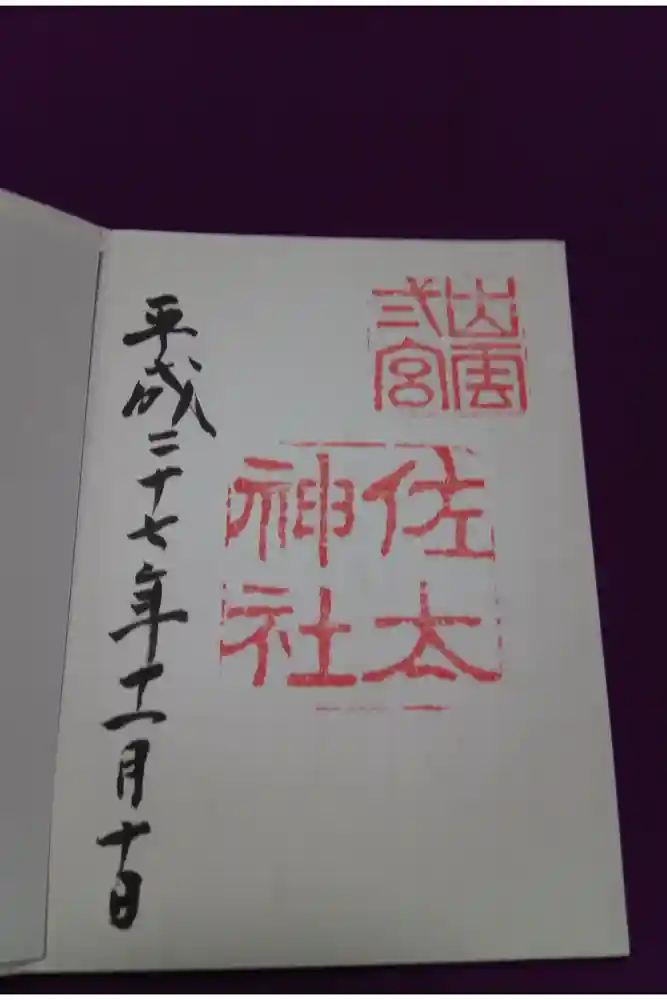 出雲
弐宮
佐太
神社
平成二十七年十一月十日